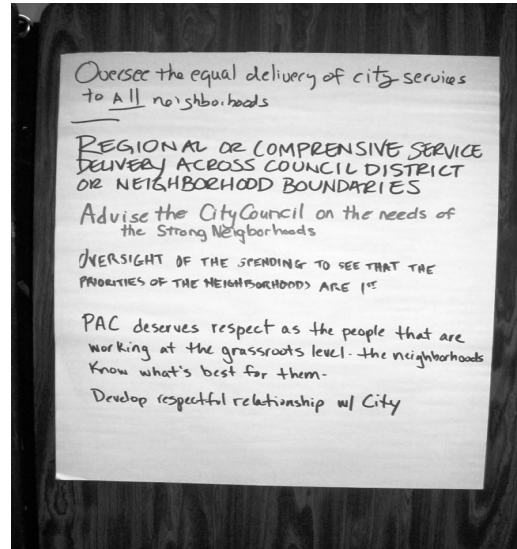 Oversee the equal delivery of city services
to All neighborhoods
REGIONAL OR COMPRENSIVE SERVICE
DELIVERY ACROSS COUNCIL DISTRICT
OR NEIGHBORHOOD BOUNDARIES
Advise the City Council on the needs of
the Strong Neigborhoods
OVERSIGHT OF THE SPENDING TO SEE THAT THE
PRIORITIES OF THE NEIGHBORHOODS ARE 1ST
PAC deserves respect as the people that are
working at the grassroots level. the neighborhoods
Know what's best for them.
Develop respectful relationship w/ City